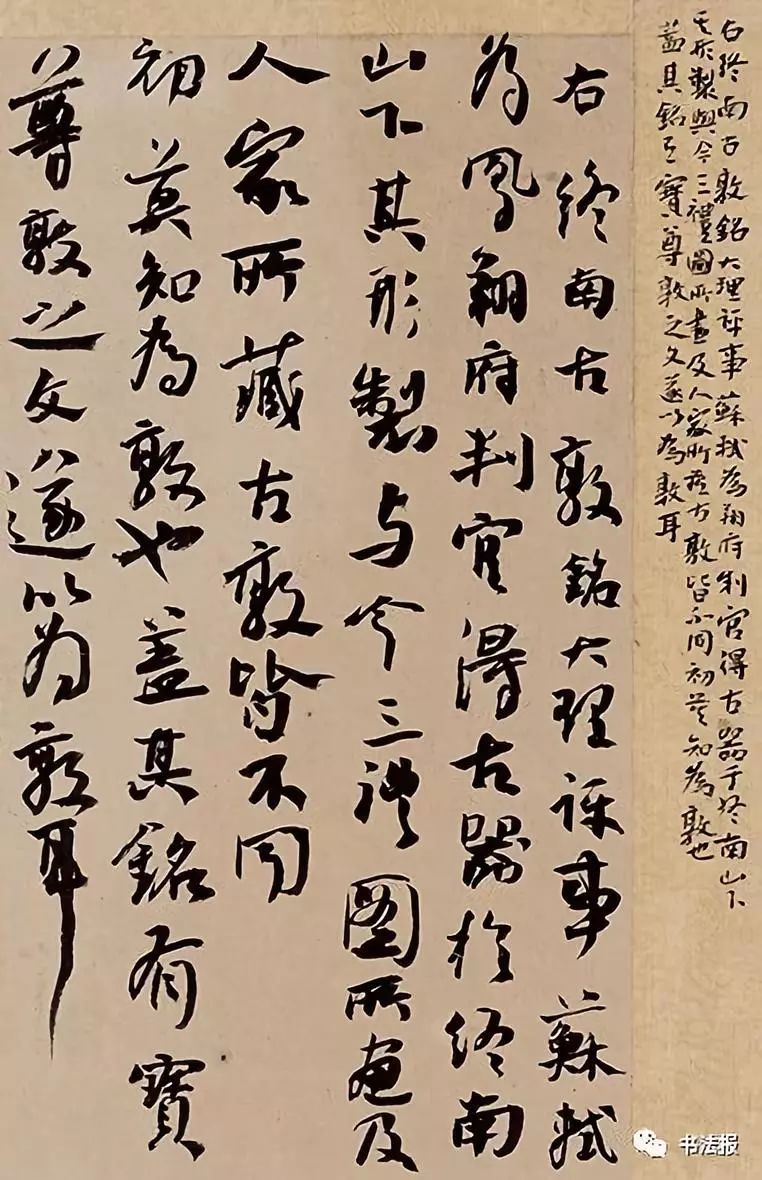 右終南古敦銘大理評事蘇軾為翔府判官得古器于終南山下
其形製與今三禮圖所畫及人家所藏古敦皆不同初莫知為敦也
蓋其銘有寶尊敦之文遂以為敦耳
右終南古敦銘大理評事蘇軾
為鳳翔府判官得古器於終南
山下其形製与今三禮圖所畫及
人家所藏古敦皆不同
初莫知為敦也蓋其銘有寶
尊敦之文遂以為敦耳
书法报